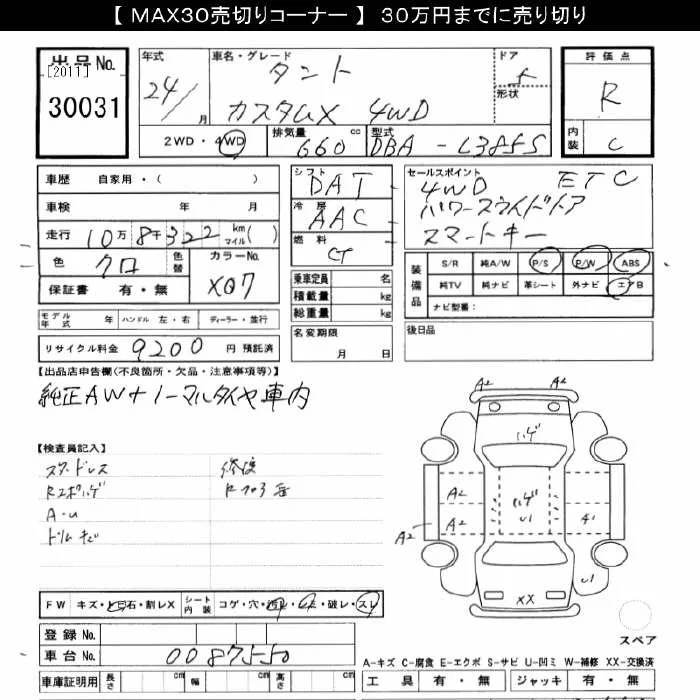 【 MAX30売切りコーナー 】 30万円までに売り切り
出品No.
[2011]
30031
年式
24/
月
車名・グレード
タント
カスタムX 4WD
ドア
5
形状
評価点
R
内装
C
2WD・4WD
排気量
660 cc
型式
DBA - L385S
車歴 自家用・( )
車検 年 月
走行 10万8千322 km マイル( )
色 クロ 色替
カラーNo. X07
保証書 有・無
シフト DAT
冷房 AAC
燃料
乗車定員 名
積載量 kg
総重量 kg
セールスポイント
4WD ETC
パワースライドドア
スマートキー
装備品
S/R 純A/W P/S P/W ABS
純TV 純ナビ 革シート 外ナビ エアB
ナビ型番:
モデル年式 年 ハンドル 左・右 ディーラー・並行
名変期限
月 日
後日品
リサイクル料金 9200 円 預託済
【出品店申告欄(不良箇所・欠品・注意事項等)】
純正AW+ノーマルタイヤ車内
【検査員記入】
スタッドレス
A-U
修復
A2 A2
ハゲ
A2
ハゲ
A2
A2
U1
U1
XX
FW キズ・ヒ石・割レX
シート内装 コゲ・穴・汚レ・破レ・スレ
登録 No.
車台 No. 0087550
車庫証明用 長さ cm 幅 cm 高さ cm
スペア
A-キズ C-腐食 E-エクボ S-サビ U-凹ミ W-補修 XX-交換済
工具 有・無 ジャッキ 有・無